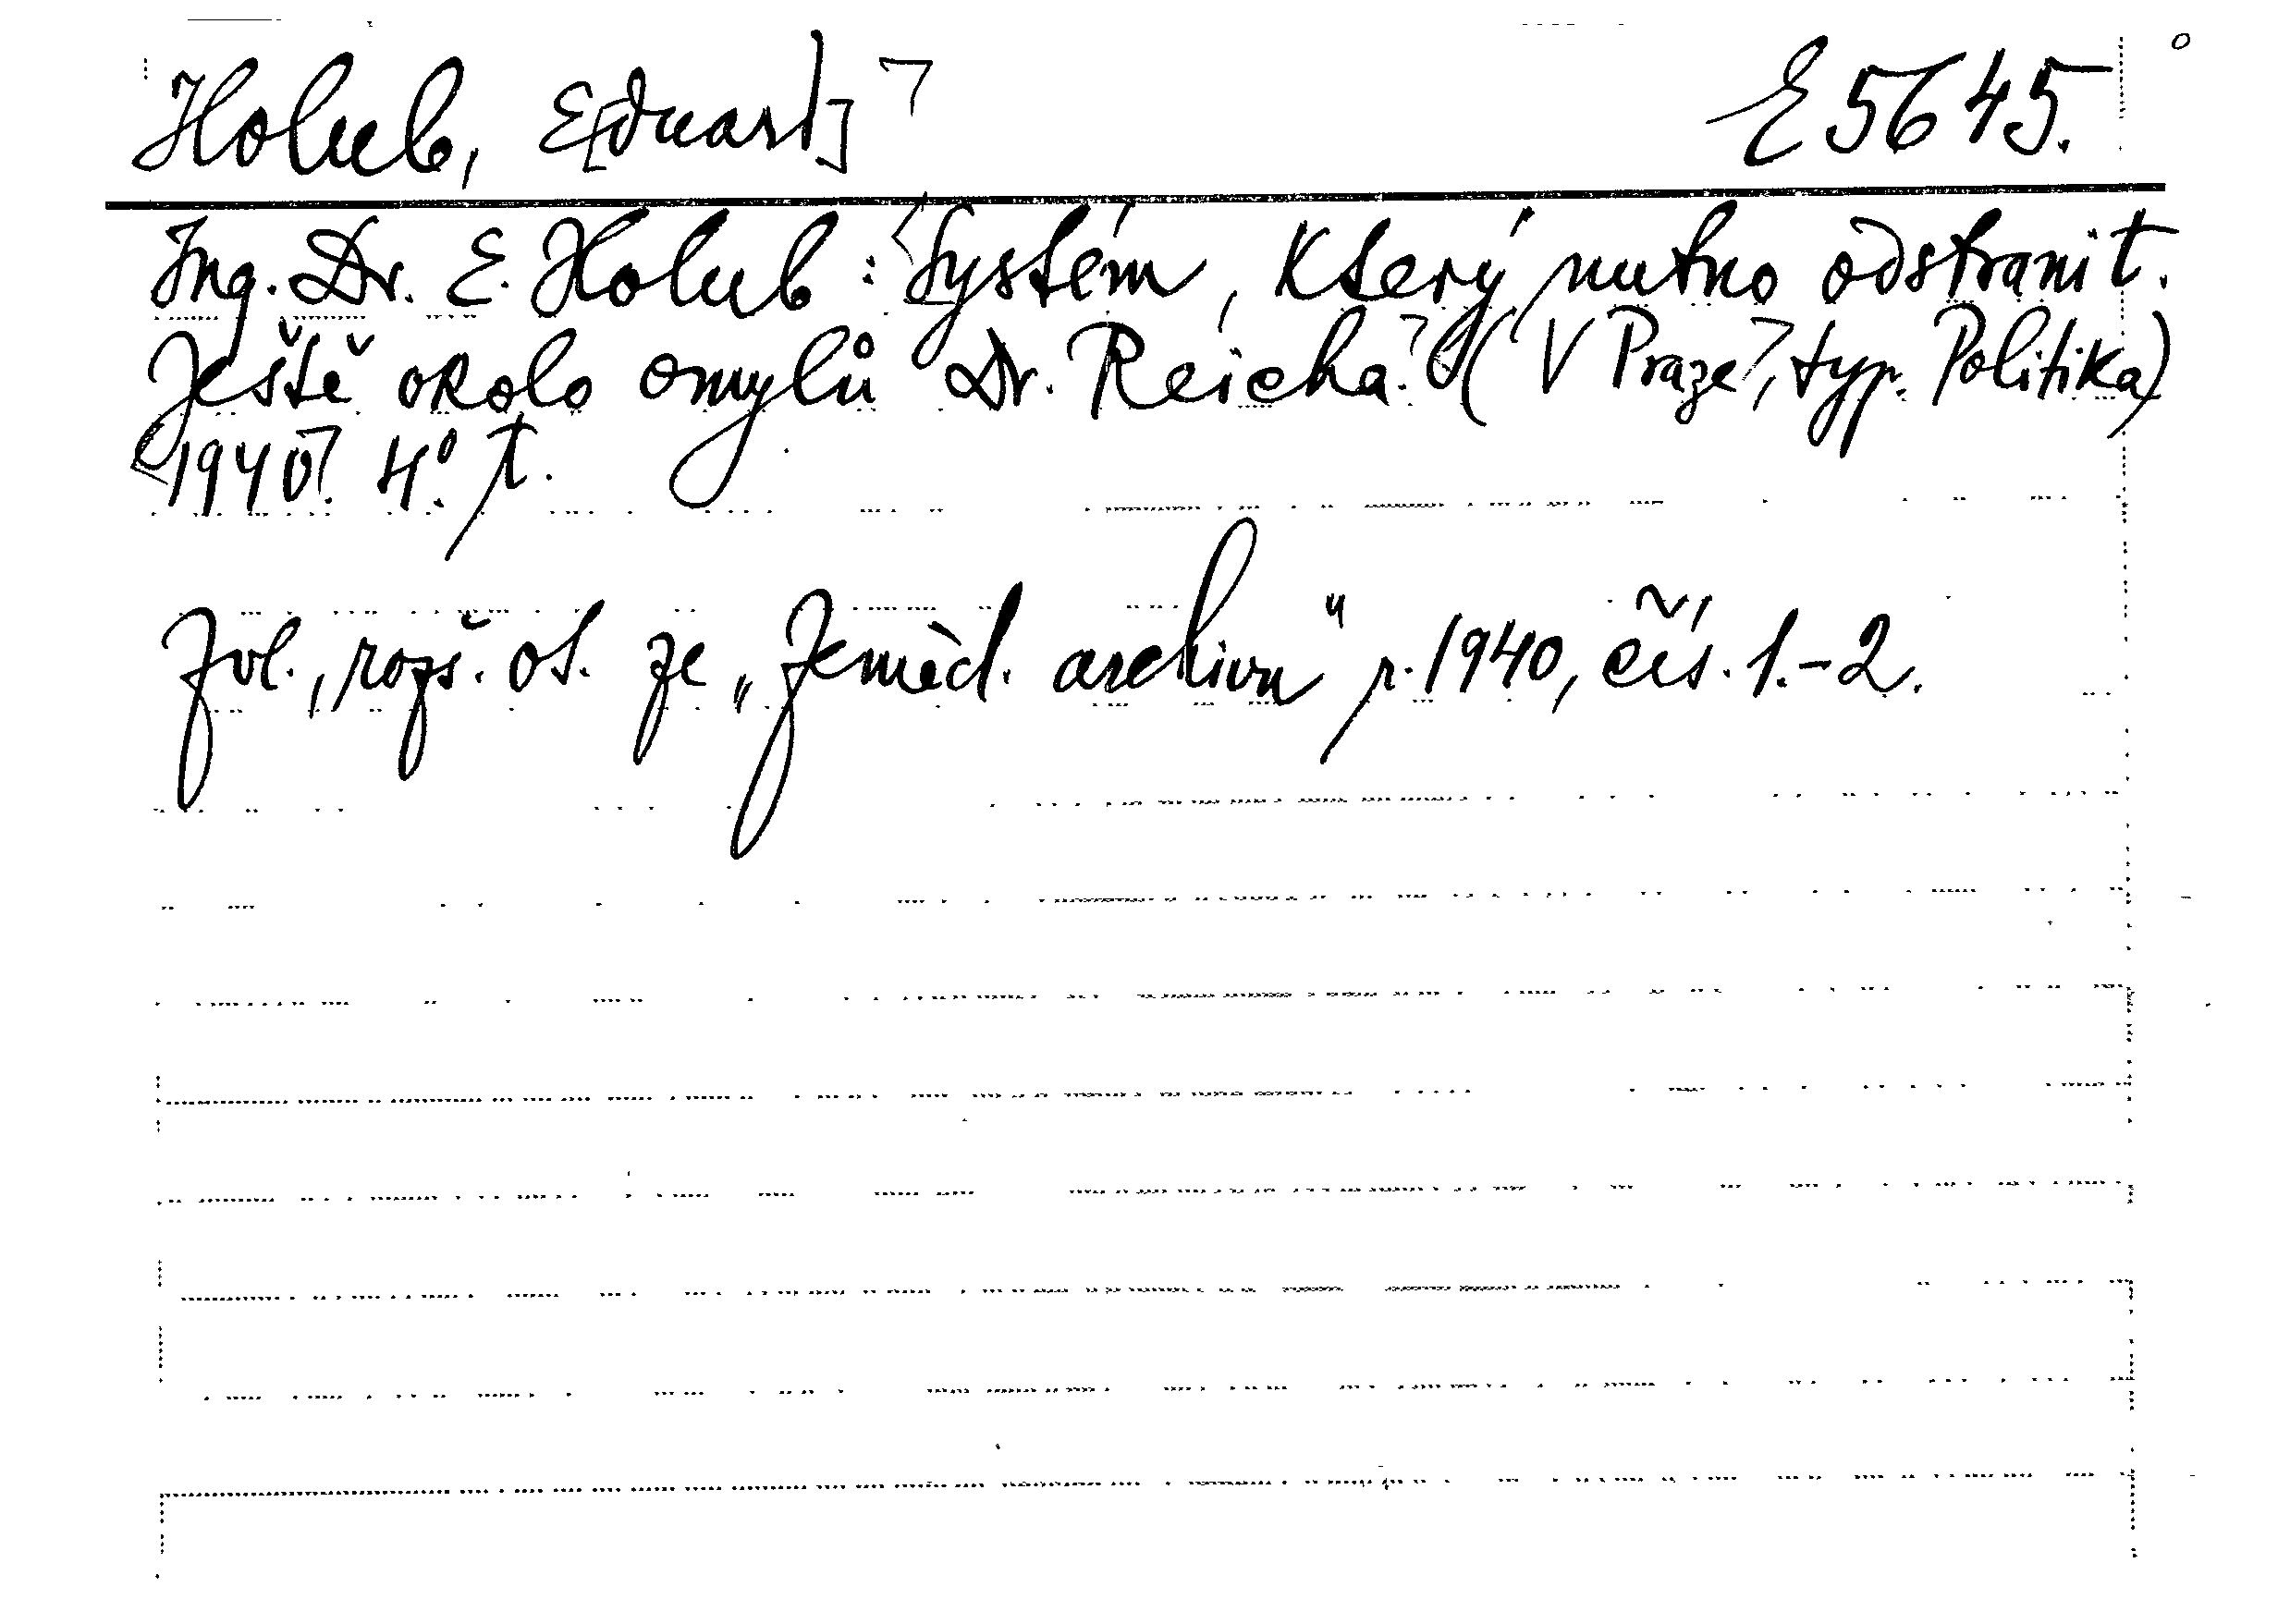 Holub, E[duard] E 5645.
Ing. Dr. E. Holub: Systém, který nutno odstranit.
Ještě okolo omylů Dr. Reicha. (V Praze, typ. Politika)
1940. 4°. t.
Zvl., rozš. ot. ze „Zeměd. archivu" r. 1940, čís. 1.-2.